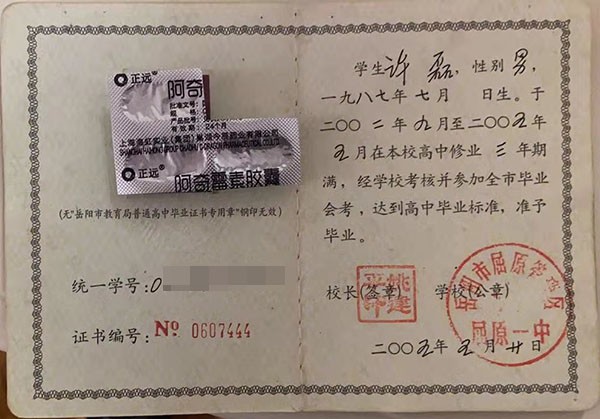 正远
阿奇
批准文号:
规格
产品批号:
有效期:24个月
巢湖今辰药业有限公司
正远
阿奇霉素胶囊
(无“岳阳市教育局普通高中毕业证书专用章”钢印无效)
统一学号:0
证书编号:№ 0607444
学生许磊,性别男,
一九八七年七月 日生。于
二〇〇二年九月至二〇〇五年
五月在本校高中修业三年期
满,经学校考核并参加全市毕业
会考,达到高中毕业标准,准予
毕业。
校长(签章) 学校(公章)
市屈原管理区
屈原一中
二〇〇五年五月廿日